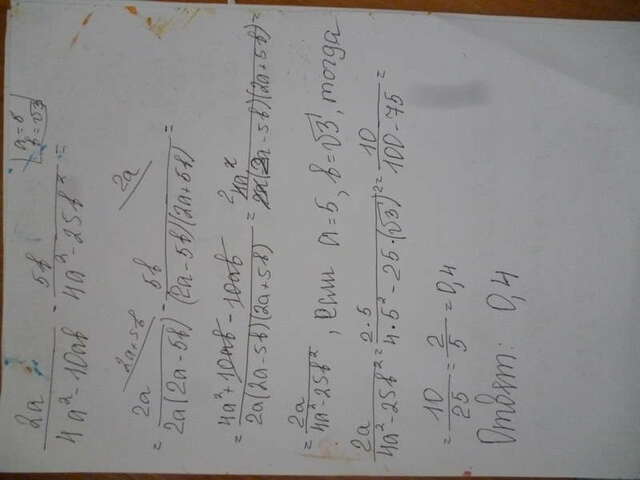 2a/(4a²-10ab) - 5b/(4a²-25b²) = | a=5 b=√3 |
= 2a/(2a(2a-5b)) \2a+5b - 5b/((2a-5b)(2a+5b)) \2a =
= (4a²+10ab-10ab)/(2a(2a-5b)(2a+5b)) = 4a²/(2a(2a-5b)(2a+5b)) =
= 2a/(4a²-25b²), если a=5, b=√3, тогда
2a/(4a²-25b²) = 2·5/(4·5²-25·(√3)²) = 10/(100-75) =
= 10/25 = 2/5 = 0,4
Ответ: 0,4